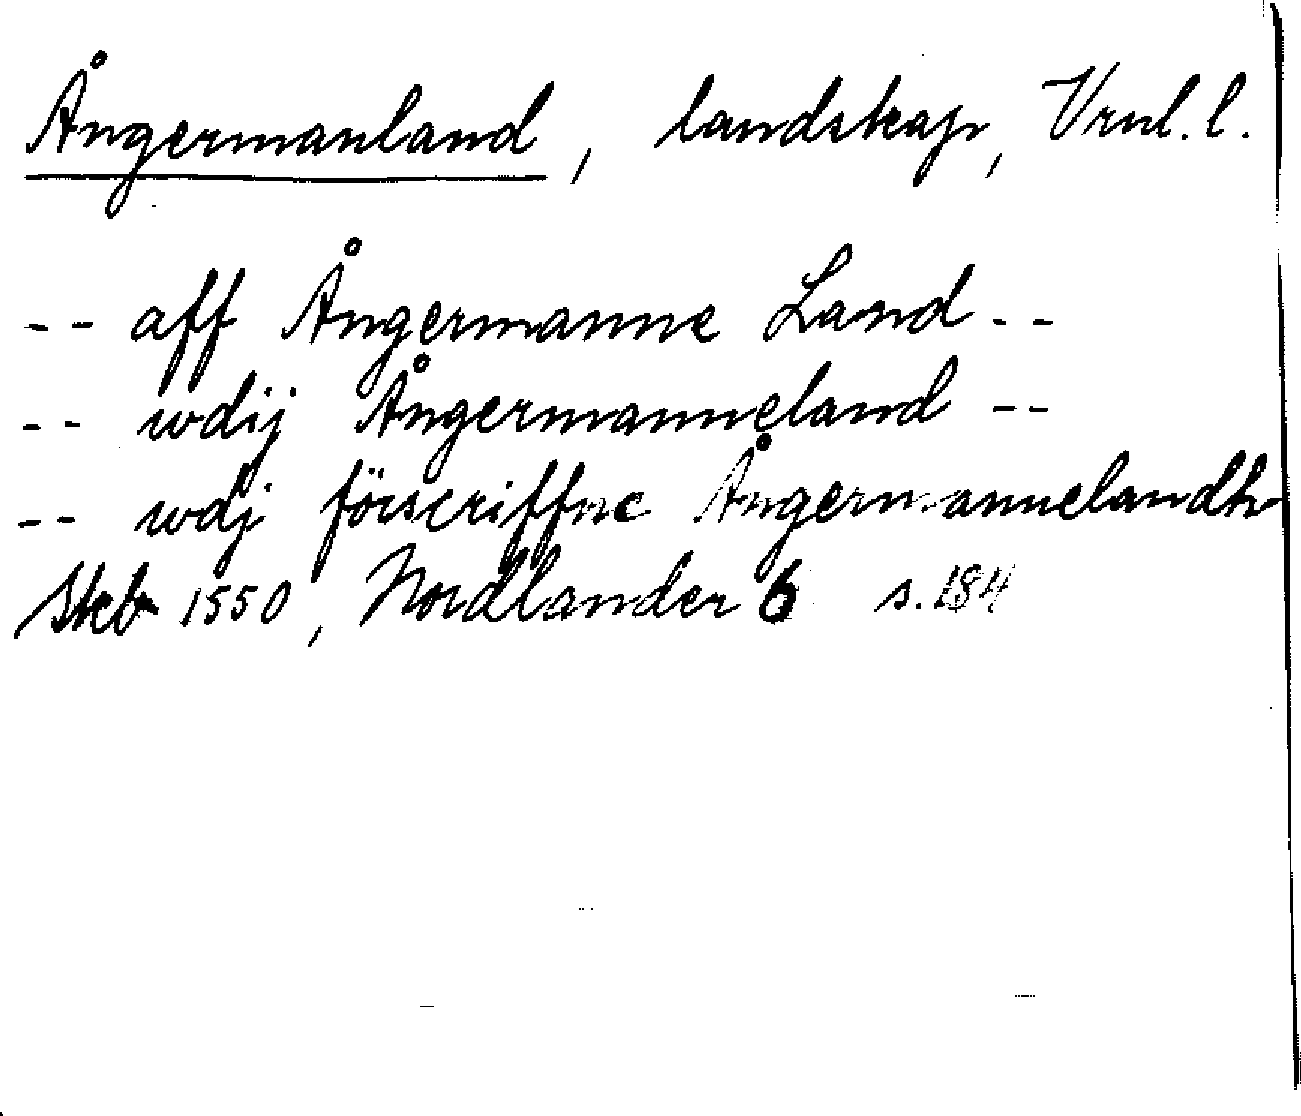 Ångermanland, landskap, Vrnl. l.
-- aff Ångermanne Land --
-- wdij Ångermanneland --
-- wdj förscriffne Ångermannelandh
Skb 1550, Nordlander 6 s. 184